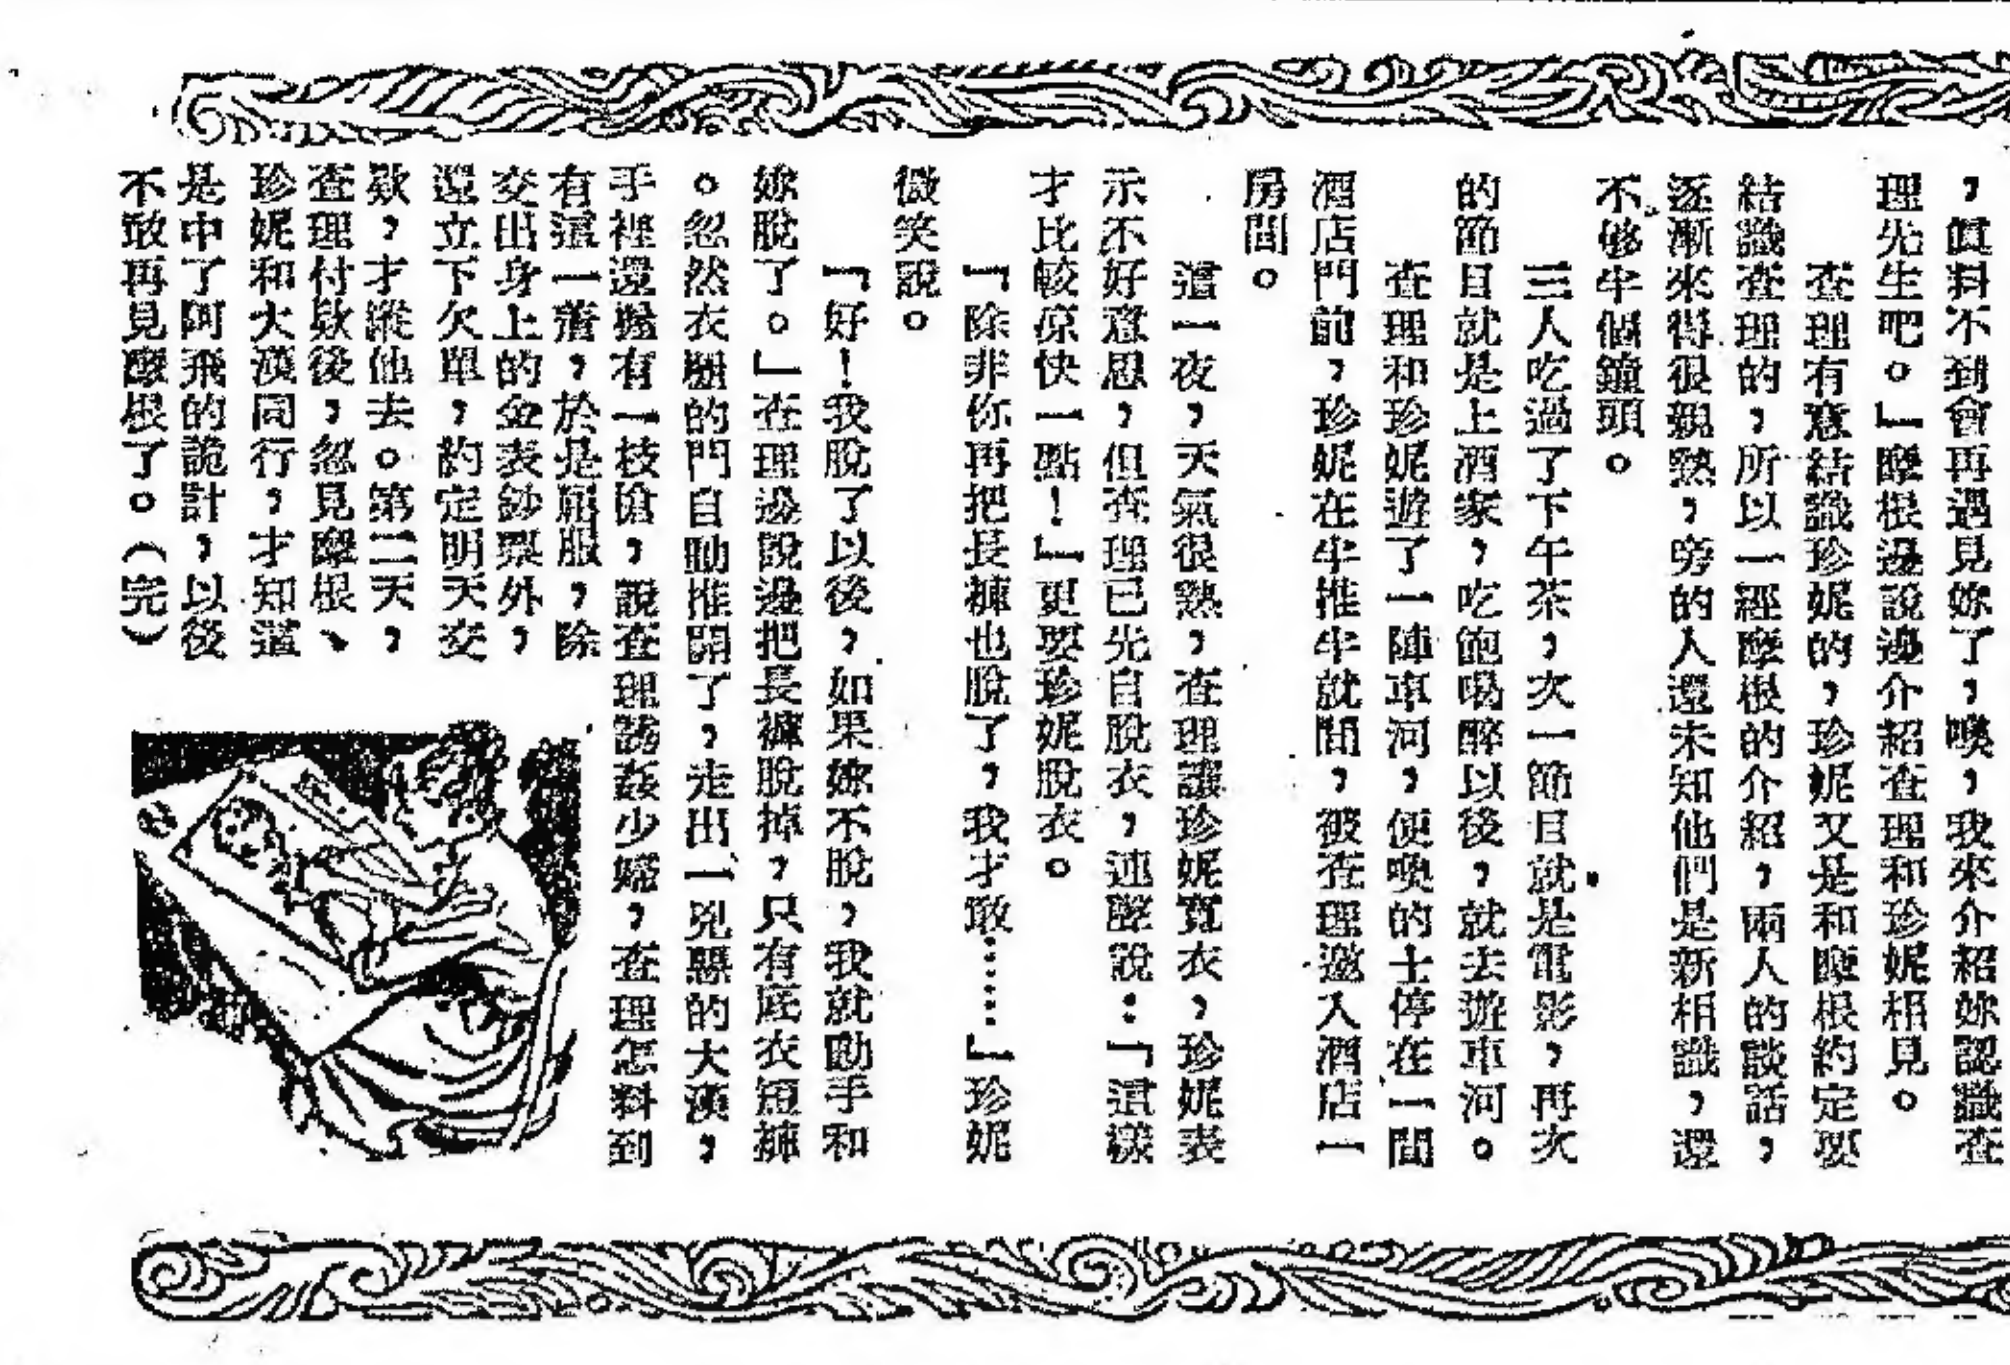 ，眞料不到會再遇見妳了，噢，我來介紹妳認識查
理先生吧。」摩根邊說邊介紹查理和珍妮相見。
查理有意結識珍妮的，珍妮又是和摩根約定要
結識查理的，所以一經摩根的介紹，兩人的談話，
逐漸來得很親熱，旁的人還未知他們是新相識，還
不够半個鐘頭。
三人吃過了下午茶，次一節目就是電影，再次
的節目就是上酒家，吃飽喝醉以後，就去遊車河。
查理和珍妮遊了一陣車河，便喚的士停在一間
酒店門前，珍妮在半推半就間，被查理邀入酒店一
房間。
這一夜，天氣很熱，查理讓珍妮寬衣，珍妮表
示不好意思，但查理已先自脫衣，連聲說：「這樣
才比較凉快一點！」更要珍妮脫衣。
「除非你再把長褲也脫了，我才敢……」珍妮
微笑說。
「好！我脫了以後，如果妳不脫，我就動手和
妳脫了。」查理邊說邊把長褲脫掉，只有底衣短褲
。忽然衣櫃的門自動推開了，走出一兇惡的大漢，
手裡還握有一枝槍，說查理誘姦少婦，查理怎料到
有這一着，於是屈服，除
交出身上的金表鈔票外，
還立下欠單，約定明天交
欵，才縱他去。第二天，
查理付欵後，忽見摩根、
珍妮和大漢同行，才知道
是中了阿飛的詭計，以後
不敢再見摩根了。（完）